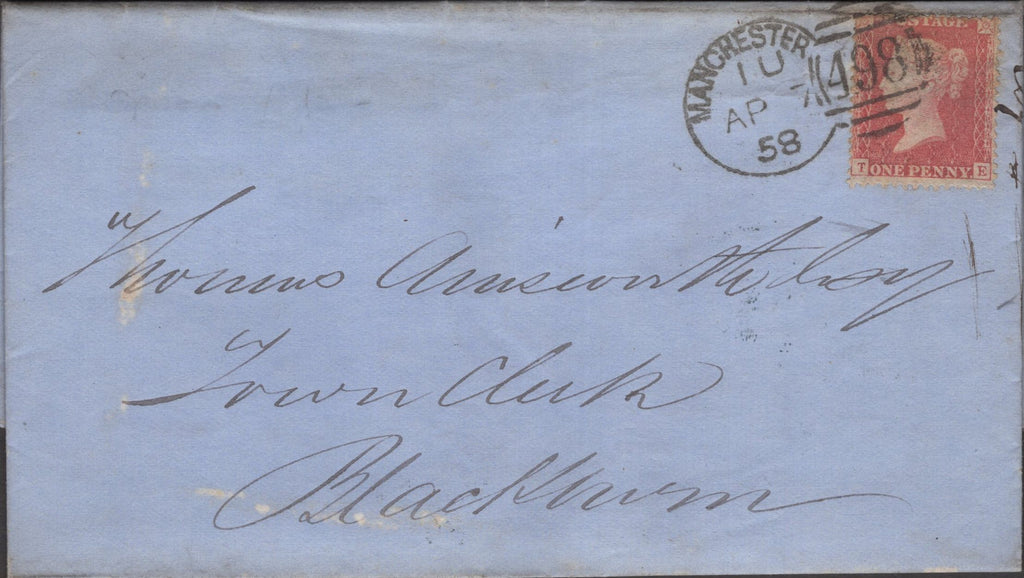 MANCHESTER
1 U
AP 7
58
498
POSTAGE
T ONE PENNY E
Thomas Ainsworth Esq
Town Clerk
Blackburn